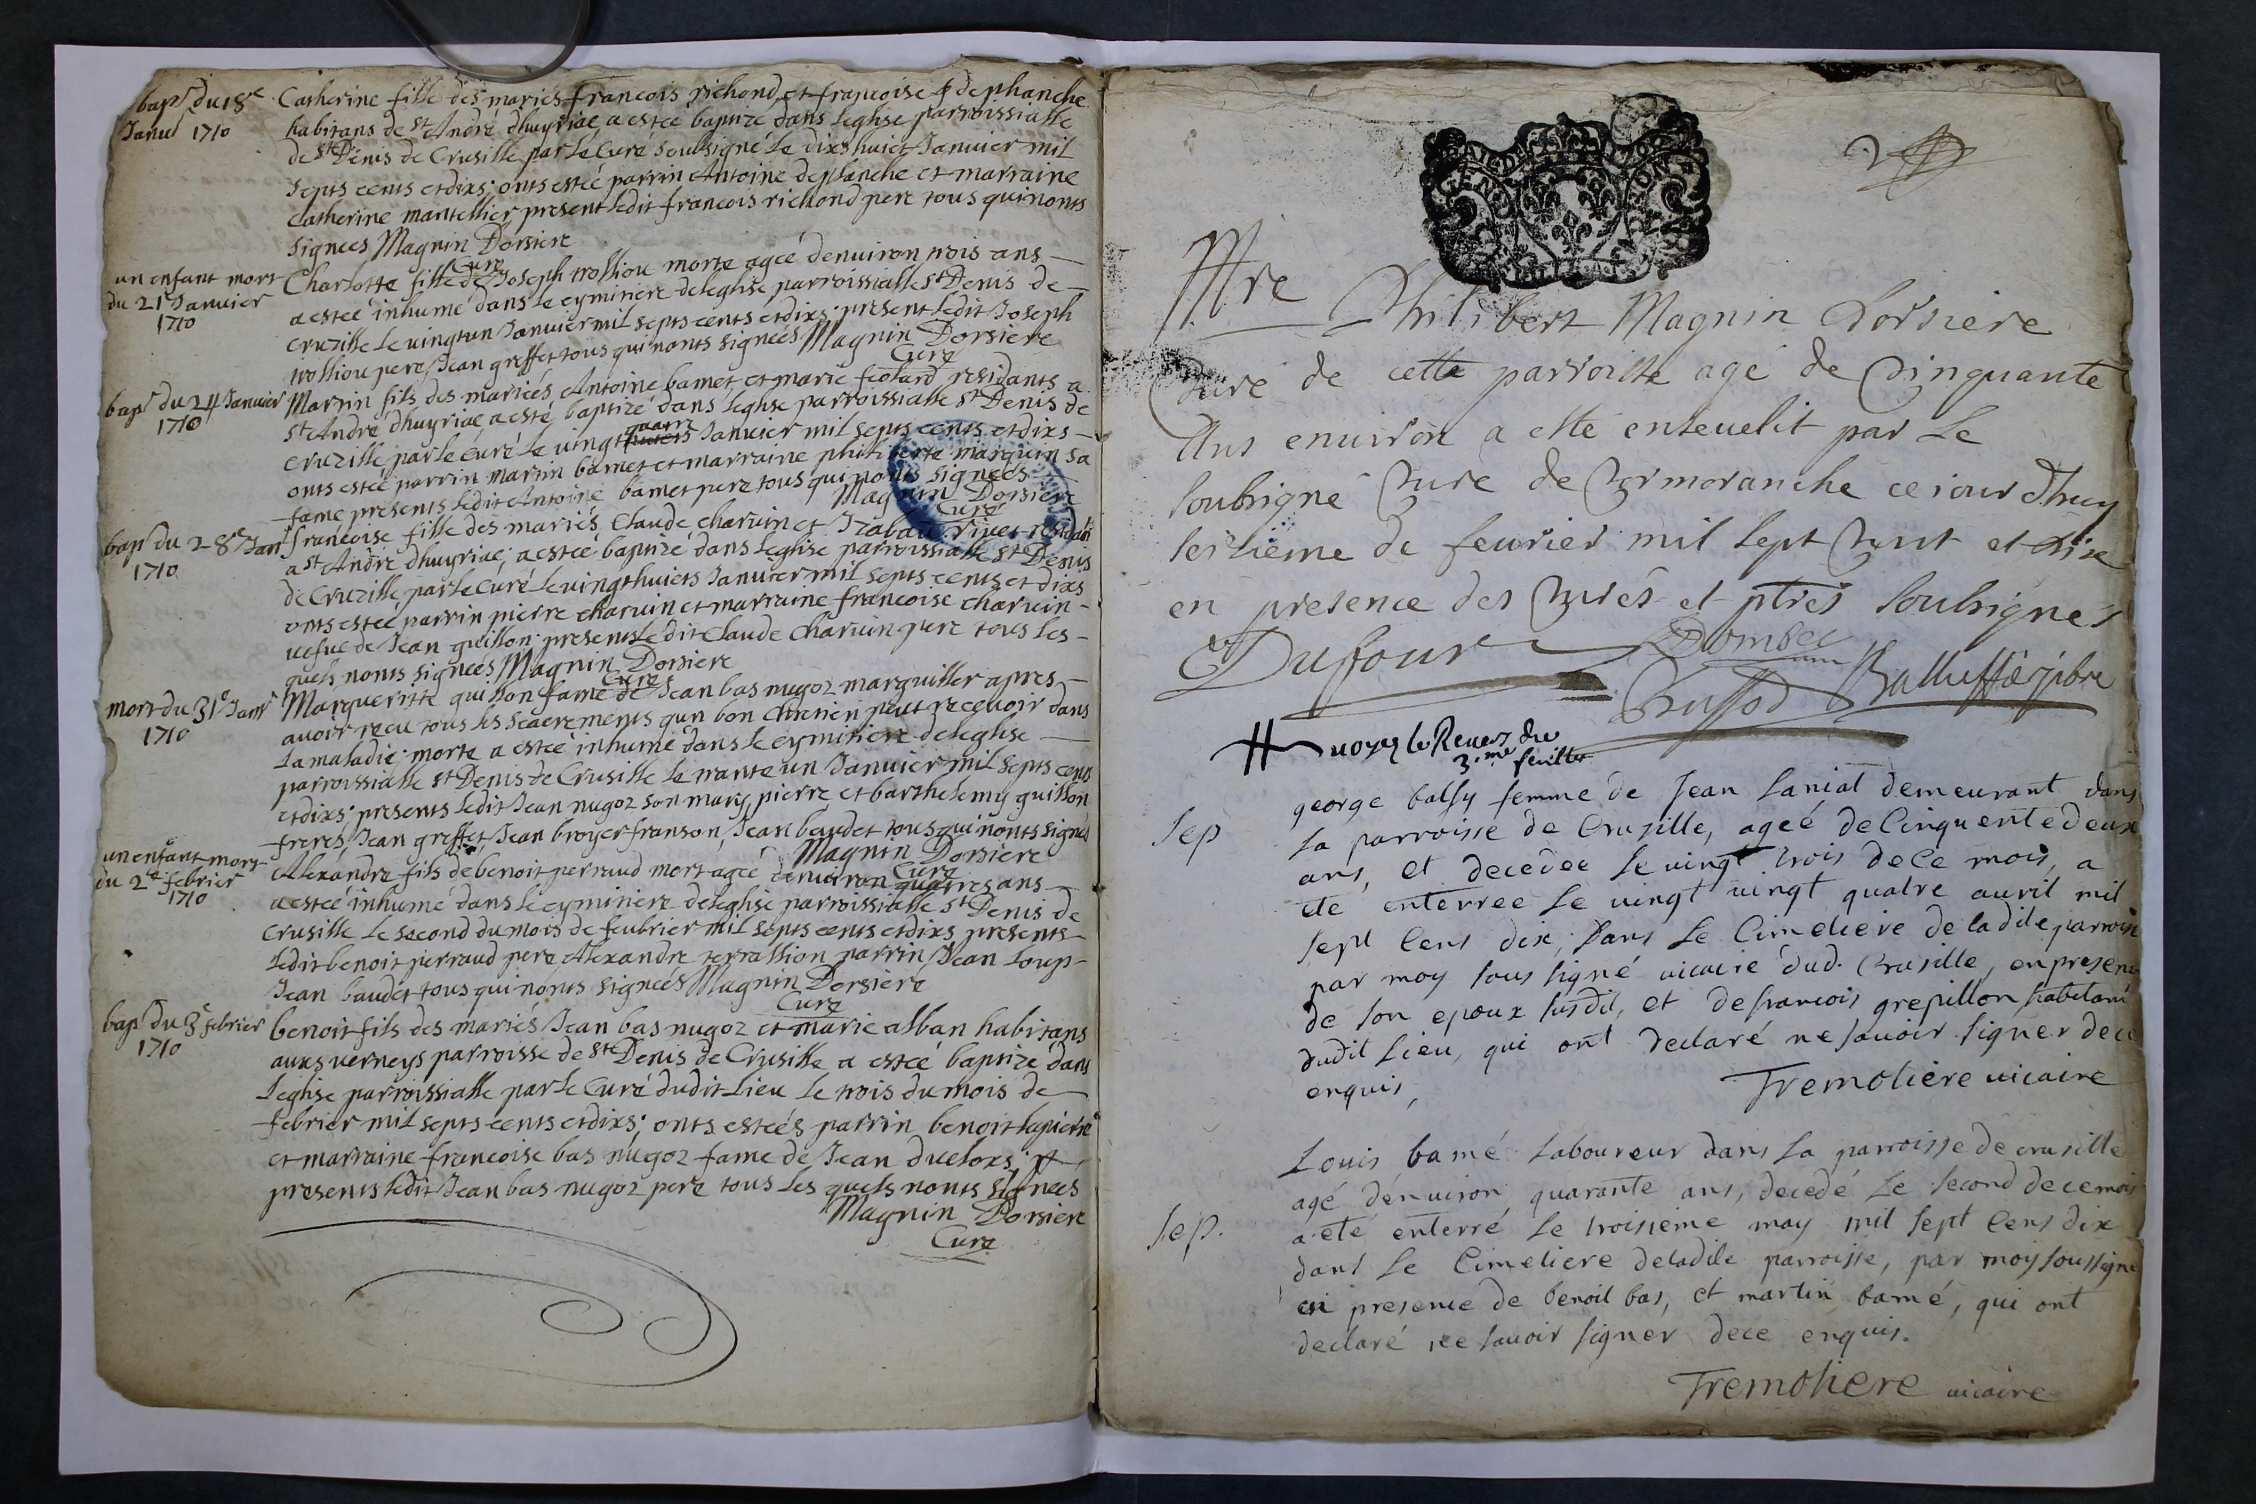 bap^r du 18^e
Janur 1710
Catherine fille des mariés francois richond et francoise deplanche
habitans de St André dhuyriac a estée baptizé dans leglise parroissialle
de St Denis de Crusille par le Curé soubsigné le dixshuict Januier mil
septs cents et dixs; onts estée parrin Antoine deplanche et marraine
Catherine mantellier present ledit francois richond pere tous qui nonts
signees Magnin Dorsiere
Curé
un enfant mort
du 21^e Januier
1710
Charlotte fille de Joseph trolliou morte agée denuiron trois ans
a estée inhumé dans le cymitiere de leglise parroissialle St Denis de
cruzille le vingtun Januier mil septs cents et dixs present ledit Joseph
trolliou pere Jean greffet tous qui nonts signées Magnin Dorsiere
Curé
bap^r du 24 Januier
1710
Martin fils des mariées Antoine bamet et marie feolard residants a
St André dhuyriac a esté baptizé dans leglise parroissialle St Denis de
cruzille par le curé le uingt quatre Januier mil septs cents et dixs
onts estée parrin martin bamet et marraine philiberte marguin sa
fame presents ledit Antoine bamet pere tous qui nonts signées
Magnin Dorsiere
Curé
bap^r du 28^e Jan^r
1710
francoise fille des mariés Claude charuin et Izabau riuet residants
a St André dhuyriac; a estée baptizé dans leglise parroissialle St Denis
de Cruzille par le Curé le uingthuicts Januier mil septs cents et dixs
onts estée parrin pierre charuin et marraine francoise charuin
uefue de Jean guillon presents le dit Claude Charuin pere tous les
quels nonts signées Magnin Dorsiere
Curé
mort du 31^e Jan^r
1710
Marguerite guillon fame de Jean bas nugoz marguillier apres
auoir recu tous les seacrements qun bon chretien peut receuoir dans
la maladie morte a estée inhumé dans le cymitiere de leglise
parroissialle St Denis de Crusille le trante un Januier mil septs cents
et dixs; presents ledit Jean nugoz son mary, pierre et barthelemy guillon
freres, Jean greffet, Jean broyer franson, Jean baudet tous qui nonts signés
Magnin Dorsiere
Curé
un enfant mort
du 2^e febrier
1710
Alexandre fils de benoit perraud mort agée denuiron quatres ans
a estée inhumé dans le cymitiere de leglise parroissialle St Denis de
Crusille le second du mois de feubrier mil septs cents et dixs presents
ledit benoit perraud pere Alexandre terrallion parrin Jean loup
Jean baudet tous qui nonts signées Magnin Dorsiere
Curé
bap^r du 3^e febrier
1710
benoit fils des mariés Jean bas nugoz et marie alban habitans
auxs verneys parroisse de St Denis de Crusille a estée baptizé dans
leglise parroissialle par le Curé dudit lieu le trois du mois de
febrier mil septs cents et dixs; onts estées parrin benoit lapierre
et marraine francoise bas nugoz fame de Jean ducloxs
presents ledit Jean bas nugoz pere tous les quels nonts signées
Magnin Dorsiere
Curé
2
Mre Philibert Magnin Dorsiere
Curé de cette parroisse agé de Cinquante
Ans enuiron a esté enseuelit par le
soubsigné Curé de Cormoranche ce iour dhuy
seizieme de feurier mil sept Cent et dixe
en presence des Curés et ptres soubsignés
Dufour
voyez le Reuers du
3.me feuillet
sep
george balsy femme de Jean laniat demeurant dans
la parroisse de Crusille, ageé de Cinquente deux
ans, et decedee le uingt trois de Ce mois, a
eté enterree le uingt uingt quatre auril mil
sept Cens dix, dans le Cimetiere de ladite parroisse
par moy sous signé uicaire dud. Crusille, en presence
de son epoux susdit, et de francois grepillon habitant
dudit lieu, qui ont declaré ne sauoir signer de ce
enquis,
Tremoliere uicaire
sep.
Louis bamé laboureur dans la parroisse de crusille
agé denuiron quarante ans, decedé le second de ce mois
a eté enterré le troisieme may mil sept Cens dix
dans le Cimetiere de ladite parroisse, par moy soussigné
en presence de benoit bas, et martin bamé, qui ont
declaré ne sauoir signer de ce enquis.
Tremoliere uicaire